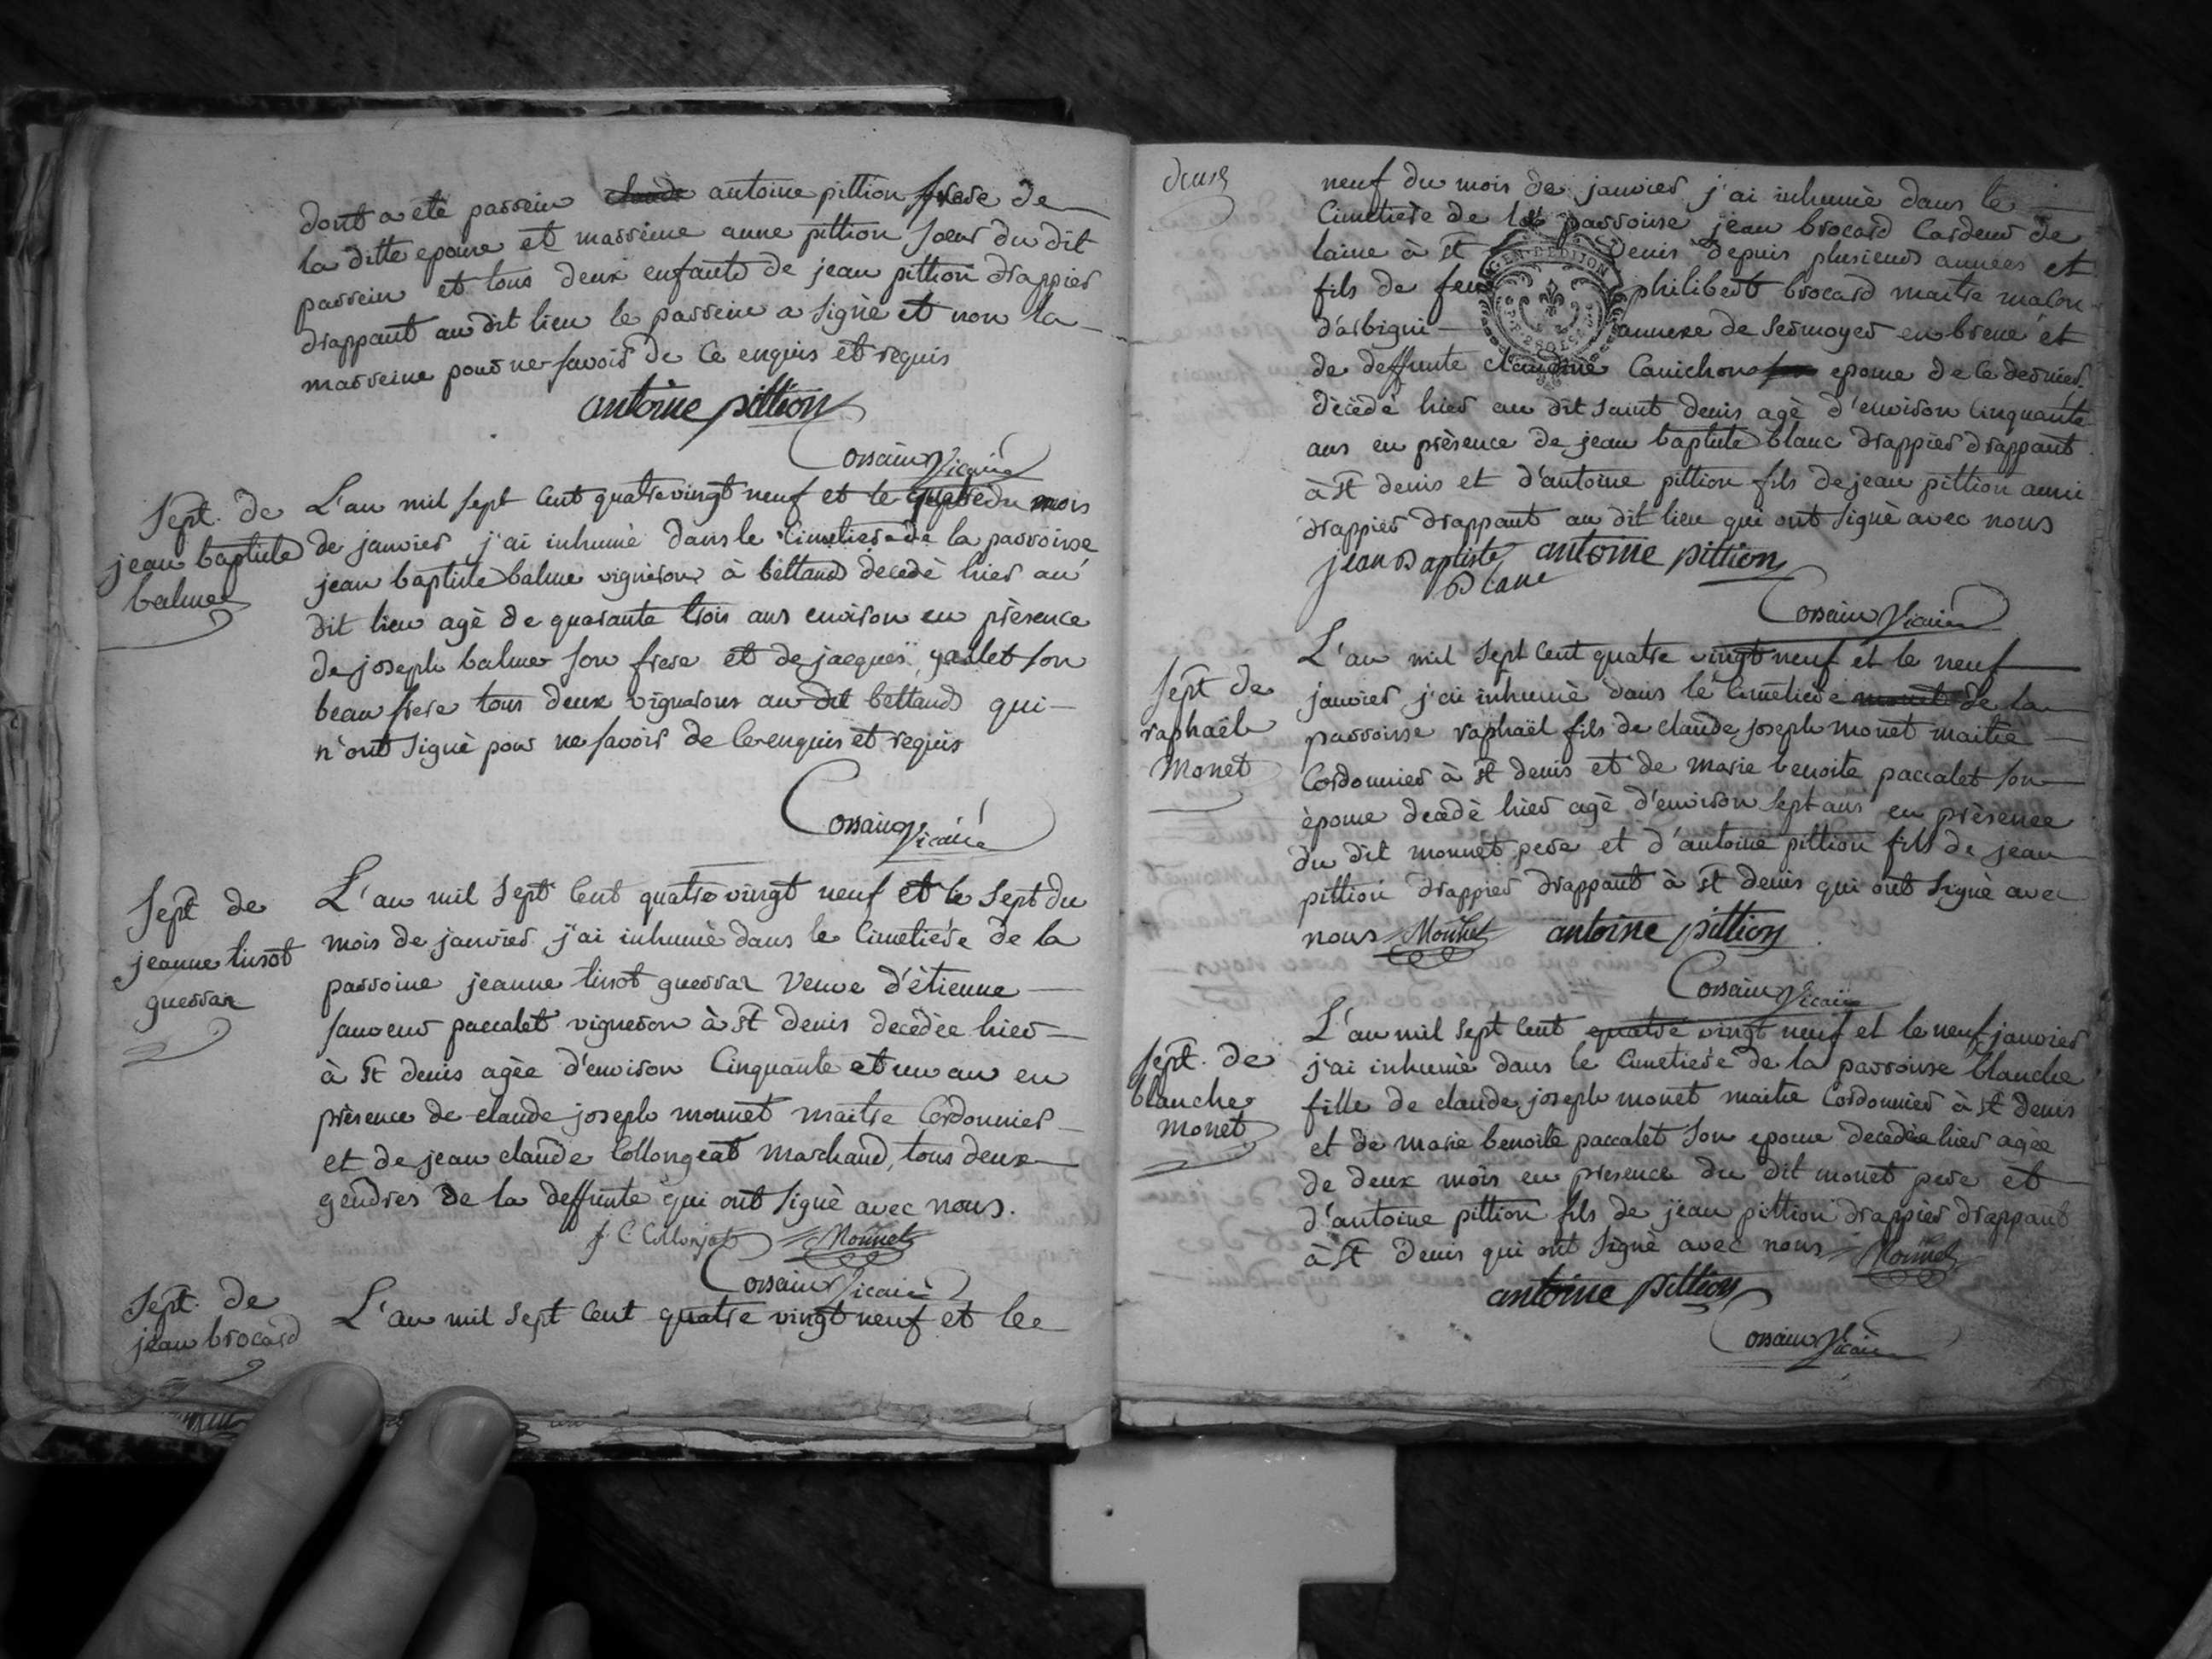 dont a eté parrein claude antoine pittion frere de
la ditte epouse et marreine anne pittion soeur du dit
parrein et tous deux enfants de jean pittion drappier
drappant au dit lieu le parrein a signè et non la
marreine pour ne savoir de ce enquis et requis
antoine pittion
Corsain Vicaire
Sept. de
jean baptiste
balme
L'an mil sept cent quatre vingt neuf et le quatre du mois
de janvier j'ai inhumè dans le cimetiere de la parroisse
jean baptiste balme vigneron à bettand decedè hier au
dit lieu agè de quarante trois ans environ en prèsence
de joseph balme son frere et de jacques gallet son
beau frere tous deux vignerons au dit bettand qui
n'ont signè pour ne savoir de ce enquis et requis
Corsain Vicaire
Sept de
jeanne tissot
guerrar
L'an mil sept cent quatre vingt neuf et le sept du
mois de janvier j'ai inhumè dans le cimetière de la
parroisse jeanne tissot guerrar veuve d'ètienne
sauveur paccalet vigneron à st denis decèdèe hier
à st denis agèe d'environ cinquante et un an en
prèsence de claude joseph monnet maitre cordonnier
et de jean claude Collongeat marchand, tous deux
gendres de la deffunte qui ont signè avec nous.
j. C Collonjat Monnet
Corsain Vicaire
Sept. de
jean brocard
L'an mil sept cent quatre vingt neuf et le
deux
neuf du mois de janvier j'ai inhumè dans le
cimetiere de la parroisse jean brocard cardeur de
laine à st denis depuis plusieurs années et
fils de feu philibert brocard maitre maçon
d'arbigni annexe de sermoyer en bresse et
de deffunte claudine Canichon son epouse de ce dernier
dècèdè hier au dit saint denis agè d'environ cinquante
ans en prèsence de jean baptiste blanc drappier drappant
à st denis et d'antoine pittion fils de jean pittion aussi
drappier drappant au dit lieu qui ont signè avec nous
jean Baptiste antoine pittion
Blanc
Corsain Vicaire
GEN. DE DIJON
Sept de
raphaël
Monet
L'an mil sept cent quatre vingt neuf et le neuf
janvier j'ai inhumè dans le cimetiere monet de la
parroisse raphaël fils de claude joseph monet maitre
cordonnier à st denis et de marie benoite paccalet son
èpouse decèdè hier agè d'environ sept ans en prèsence
du dit monnet pere et d'antoine pittion fils de jean
pittion drappier drappant à st denis qui ont signè avec
nous Monnet antoine pittion
Corsain Vicaire
Sept. de
blanche
monet
L'an mil sept cent quatre vingt neuf et le neuf janvier
j'ai inhumè dans le cimetiere de la parroisse blanche
fille de claude joseph monet maitre cordonnier à st denis
et de marie benoite paccalet son epouse decèdèe hier agèe
de deux mois en presence du dit monet pere et
d'antoine pittion fils de jean pittion drappier drappant
à st denis qui ont signè avec nous Monnet
antoine pittion
Corsain Vicaire